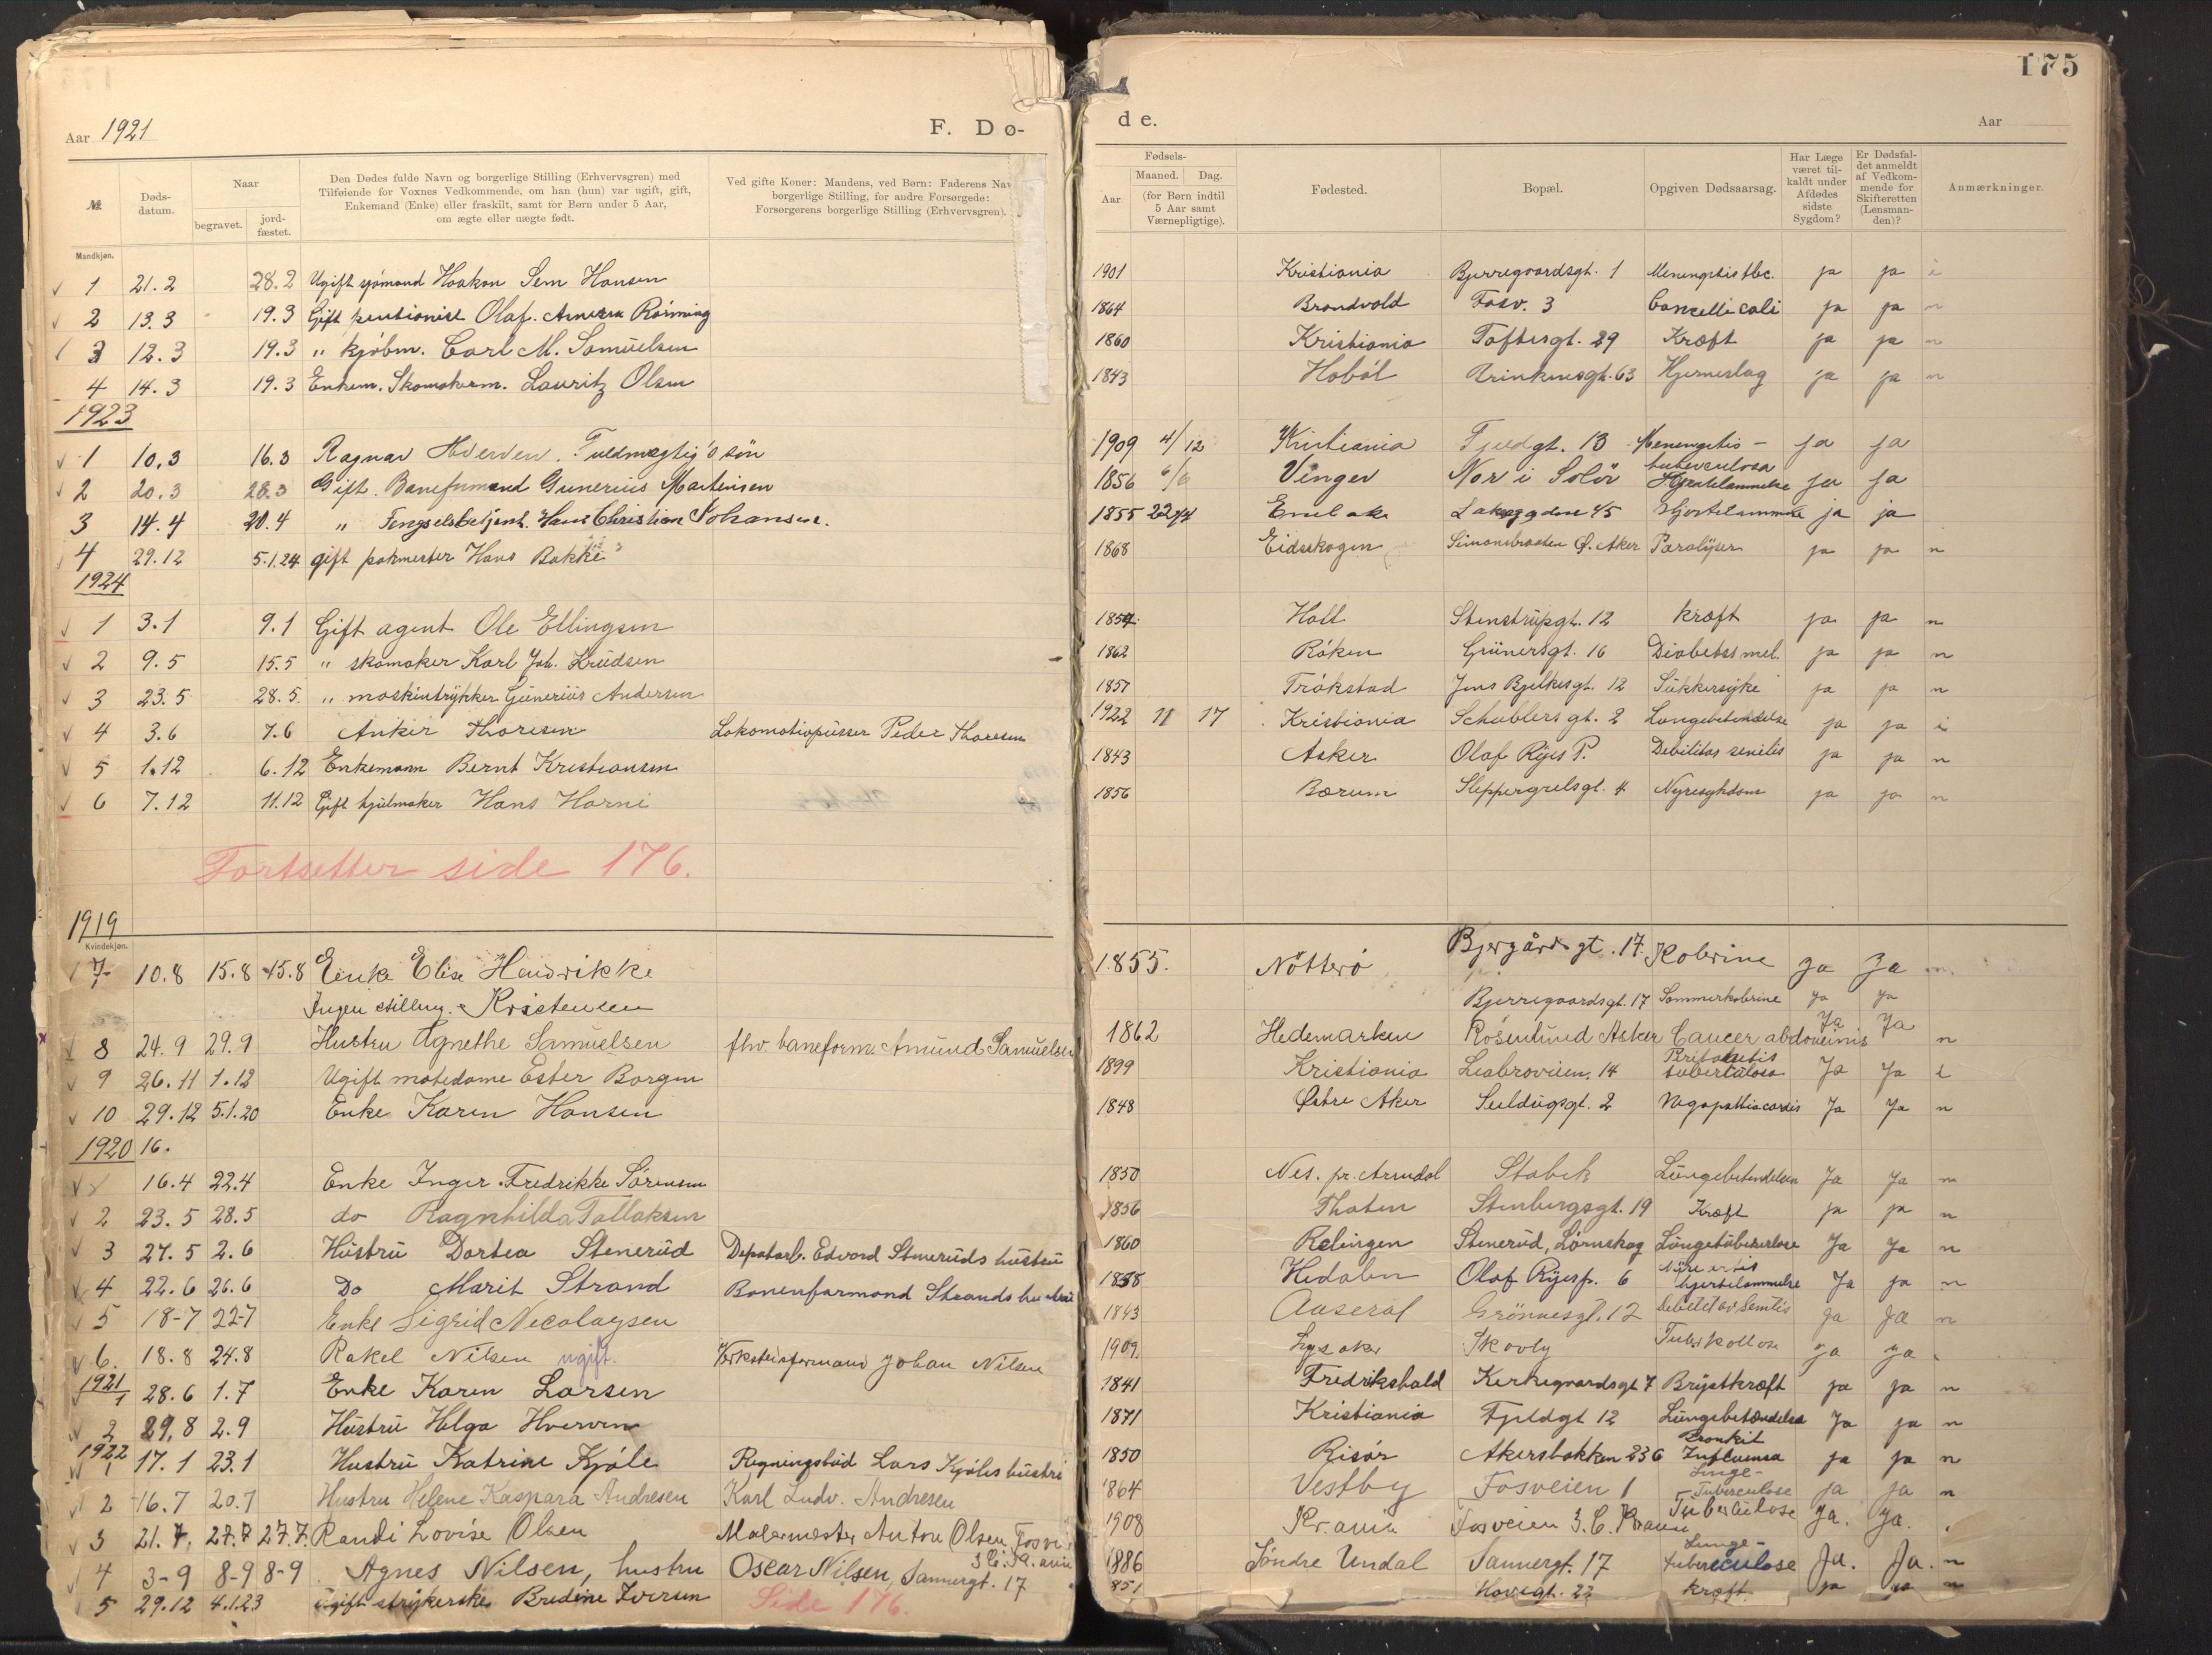 Aar 1921
F. Dø-
№
Døds-datum.
Naar
begravet.
jord-fæstet.
Den Dødes fulde Navn og borgerlige Stilling (Erhvervsgren) med
Tilføiende for Voxnes Vedkommende, om han (hun) var ugift, gift,
Enkemand (Enke) eller fraskilt, samt for Børn under 5 Aar,
om ægte eller uægte født.
Ved gifte Koner: Mandens, ved Børn: Faderens Nav
borgerlige Stilling, for andre Forsørgede:
Forsørgerens borgerlige Stilling (Erhvervsgren).
Mandkjøn.
1 21.2 28.2 Ugift sjømand Haakon Sem Hansen
2 13.3 19.3 Gift Olaf
3 12.3 19.3 " kjøbm. Carl M. Samuelsen
4 14.3 19.3 Enkem. Skomakerm. Lauritz Olsen
1923
1 10.3 16.3 Ragnar Hverven. Fuldmægtig's søn
2 20.3 28.3 Gift. Baneformand Gunerius Martinsen
3 14.4 20.4 " Fengselsbetjent. Hans Christian Johansen.
4 29.12 5.1.24 gift pakmester Hans Bakke
1924
1 3.1 9.1 Gift agent Ole Ellingsen
2 9.5 15.5 " skomaker Karl Joh. Knudsen
3 23.5 28.5 " maskintrykker Gunerius Andersen
4 3.6 7.6 Ankir Thoresen Lokomotivpusser Peder Thoresen
5 1.12 6.12 Enkemann Bernt Kristiansen
6 7.12 11.12 Gift hjulmaker Hans Harni
Fortsetter side 176.
1919
Kvindekjøn.
7 10.8 15.8 15.8 Enke Elise Hendrikke
Ingen stilling. Kristensen
8 24.9 29.9 Hustru Agnethe Samuelsen fhv. baneform. Amund Samuelsen
9 26.11 1.12 Ugift motedame Ester Borgen
10 29.12 5.1.20 Enke Karen Hansen
1920 16.
16.4 22.4 Enke Inger Fredrikke Sørensen
2 23.5 28.5 do Ragnhilda Tallaksen
3 27.5 2.6 Hustru Dortea Stenerud Depotarb. Edvard Steneruds hustru
4 22.6 26.6 Do Marit Strand Banenformand Strands hustru
5 18-7 22-7 Enke Sigrid Necolaysen
6. 18.8 24.8 Rakel Nilsen ugift. Verkstedsformand Johan Nilsen
1921
1 28.6 1.7 Enke Karen Larsen
2 29.8 2.9 Hustru Helga Hverven
1922
1 17.1 23.1 Hustru Katrine Kjøle Regningsbud Lars Kjøles hustru
2 16.7 20.7 Hustru Helene Kaspara Andresen Karl Ludv. Andresen
3 21.7. 27.7 27.7. Randi Lovise Olsen Malermester Anton Olsen, Fosvei
4 3-9 8-9 8-9 Agnes Nilsen, hustru Oscar Nilsen, Sannergt. 17
5 29.12 4.1.23 Ugift strykerske Bredine Iversen Side 176.
175
de.
Aar
Fødsels-
Aar
Maaned. Dag.
(for Børn indtil
5 Aar samt
Værnepligtige).
Fødested.
Bopæl.
Opgiven Dødsaarsag.
Har Læge
været til-
kaldt under
Afdødes
sidste
Sygdom?
Er Dødsfal-
det anmeldt
af Vedkom-
mende for
Skifteretten
(Lensman-
den)?
Anmærkninger.
1901 Kristiania Bjerregaardsgt. 1 ja ja i
1864 Brandvold Fosv. 3 ja ja n
1860 Kristiania Toftesgt. 29 Kræft ja ja n
1843 Hobøl Brinkensgt. 63 Hjerneslag ja ja n
1909 4/12 Kristiania Fjeldgt. 13 Menengitis- ja ja
tuberculosa
1856 6/6 Vinger Nor i Solør Hjertelammelse ja ja
1855 Enebak 45 Hjertelammelse ja ja
1868 Eidskogen Simonsbraaten Ø. Aker Paralyser ja ja n
1854 Holt Stenstrupgt. 12 kræft ja ja n
1862 Røken Grünersgt. 16 Diabetes mel. ja ja n
1857 Trøkstad Jens Bjelkesgt. 12 Sukkersyke ja ja n
1922 11 17 Kristiania Schüblersgt. 2 Lungebetendelse ja ja i
1843 Asker Olaf Ryes P. Debilitas senilis ja ja n
1856 Bærum Sleppegrelsgt. 4 Nyresykdom ja ja n
1855. Nötterö Bjergårdsgt. 17. Kolerine Ja Ja n
Bjerregaardsgt. 17 Sommerkolerine Ja Ja
1862 Hedemarken Rosenlund Asker Cancer abdominis Ja Ja n
1899 Kristiania Ljabroveien. 14 Peritonitis tuberculosa Ja Ja i
1848 Østre Aker Seildugsgt. 2 Ja Ja n
1850 Nes. pr. Arendal Stabek Lungebetendelsen Ja Ja n
1856 Thoten Stenbergsgt. 19 Kræft ja ja n
1860 Relingen Stenerud, Lørnskog Lungetuberkulose Ja Ja n
1858 Hedalen Olaf Ryesp. 6 hjertelammelse Ja ja n
1843 Aaseral Grönnesgt. 12 ja Ja n
1909. Lysaker Skovly ja ja
1841 Fredrikshald Kirkegaardsgt 7 Brystkræft ja ja n
1871 Kristiania Fjeldgt 12 Lungebetændelse Ja ja n
1850 Risør Akersbakken 23 6 Bronkit Influensa ja ja n
1864 Vestby Fosveien 1 Lunge-Tuberculose ja ja n
1908 Kr.ania Fosveien 3.C. Kr.ania Tuberculose Ja. Ja.
1886 Søndre Undal Sannergt. 17 Lunge-tuberculose Ja. Ja. n
851 22 kræft. ja ja n